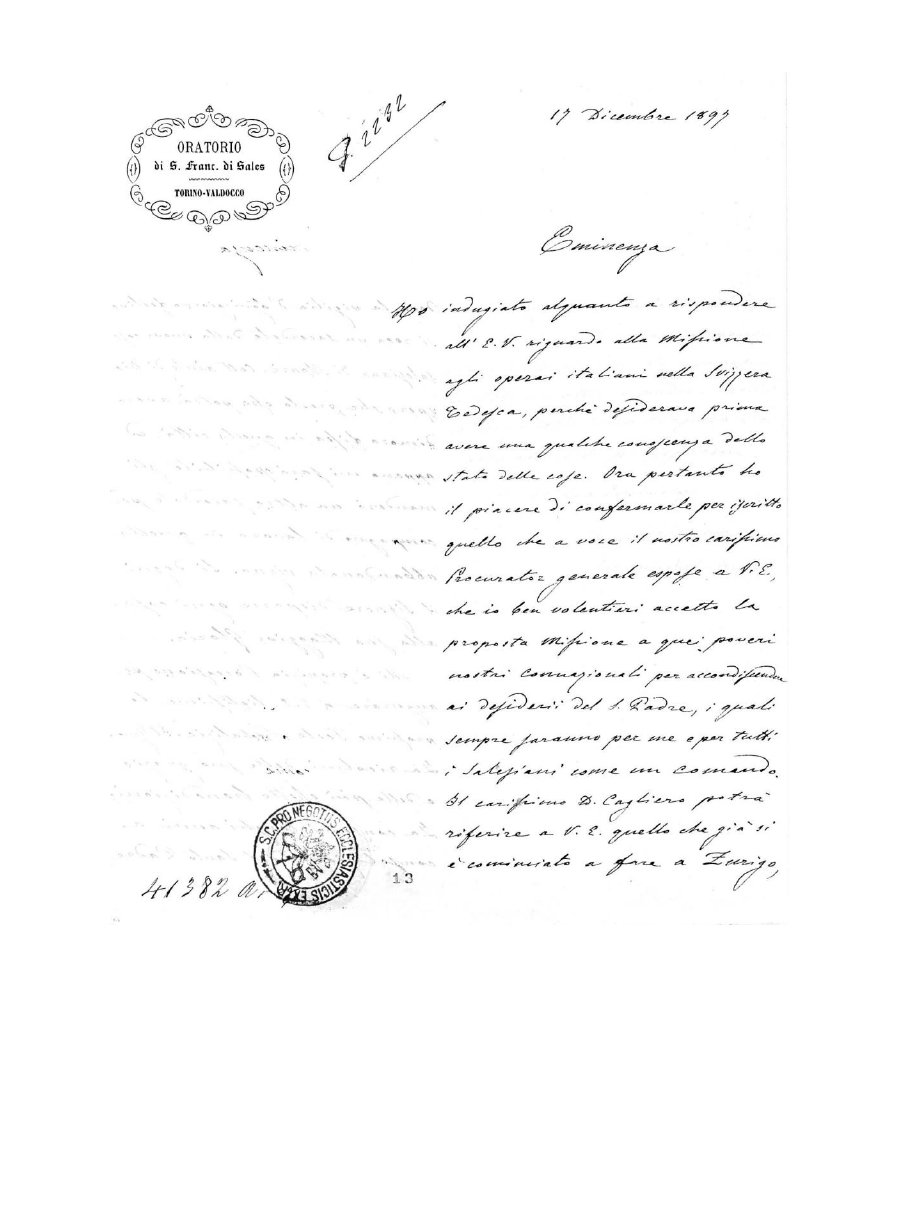 ORATORIO
di S. Franc. di Sales
TORINO-VALDOCCO
2232
17 Dicembre 1897
Eminenza
Ho indugiato alquanto a rispondere
all' E. V. riguardo alla Missione
agli operai italiani nella Svizzera
Tedesca, perchè desiderava prima
avere una qualche conoscenza dello
stato delle cose. Ora pertanto ho
il piacere di confermarle per iscritto
quello che a voce il nostro carissimo
Procurator generale espose a V. E.,
che io ben volentieri accetto la
proposta Missione a quei poveri
nostri connazionali per accondiscendere
ai desiderii del S. Padre, i quali
sempre saranno per me e per tutti
i Salesiani come un comando.
Il carissimo D. Cagliero potrà
riferire a V. E. quello che già si
è cominciato a fare a Zurigo,
S. C. PRO NEGOTIIS ECCLESIASTICIS EXTR.
41382
13